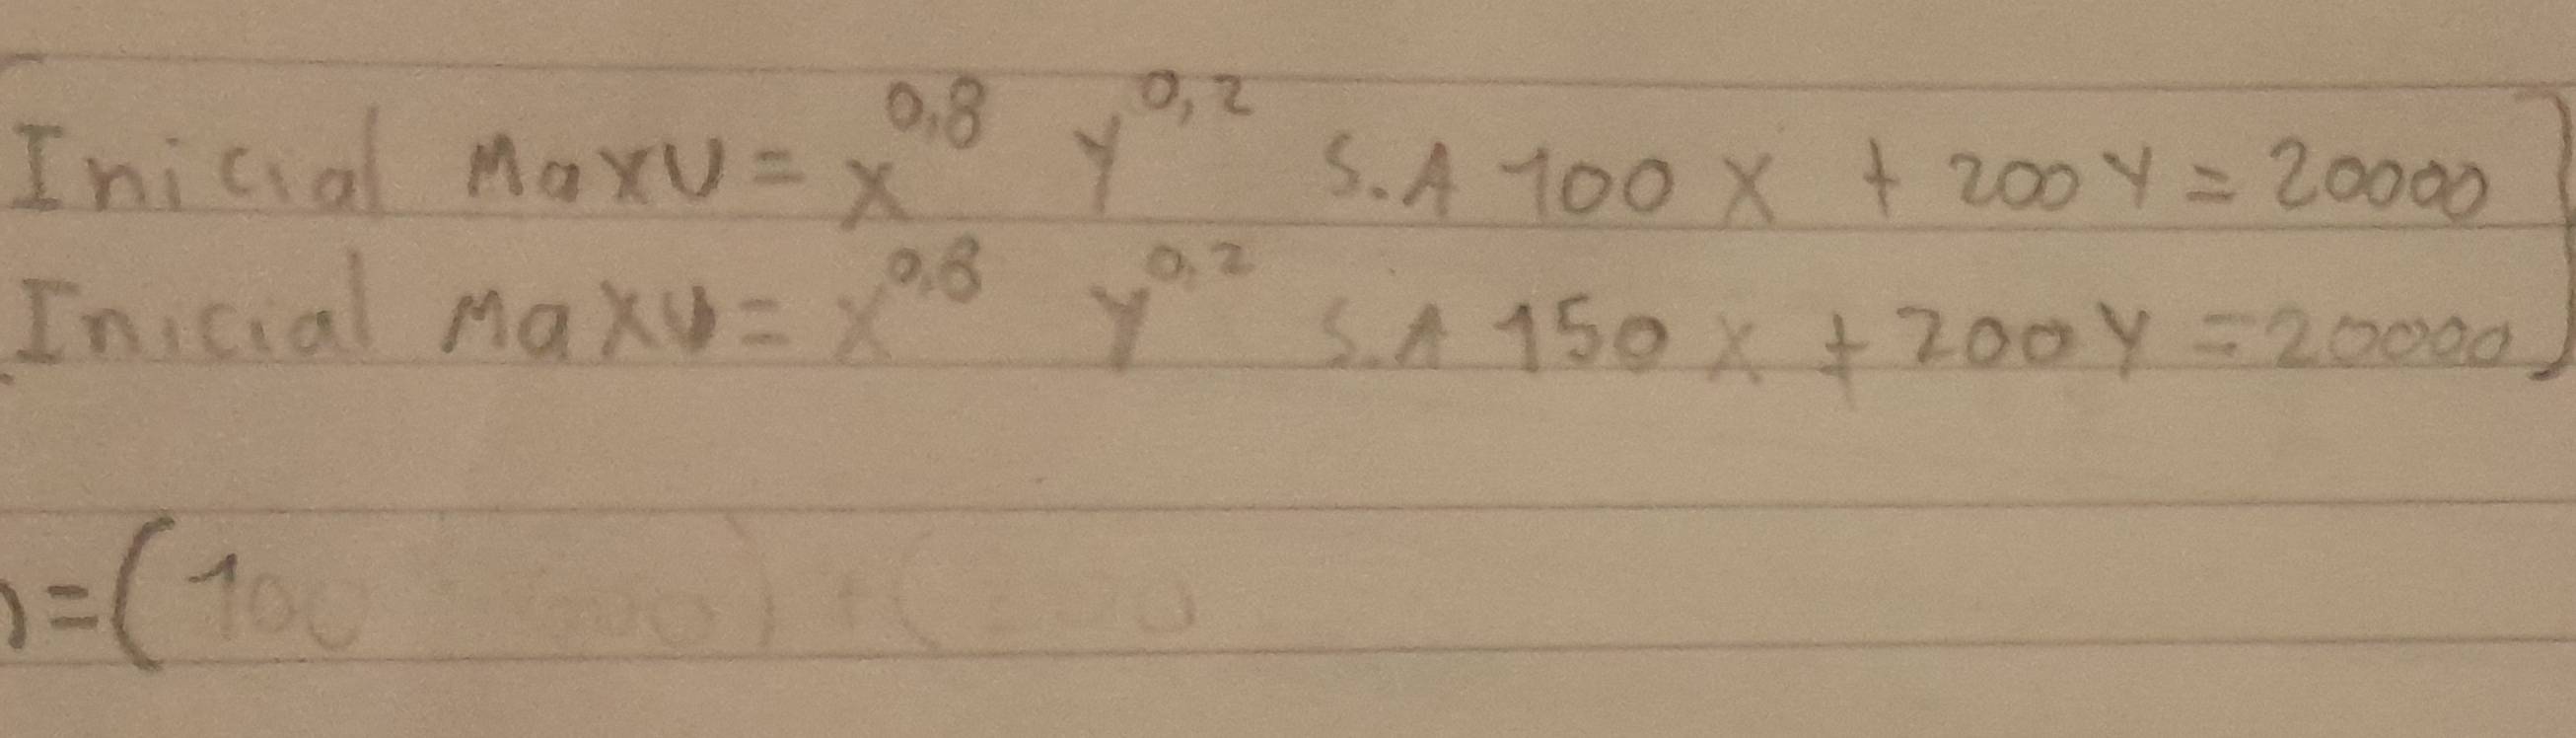 Inicial Max U = x^0,8 y^0,2 S.A 100 X + 200 Y = 20000
Inicial Max U = x^0,8 y^0,2 S.A 150 X + 200 Y = 20000
= (100